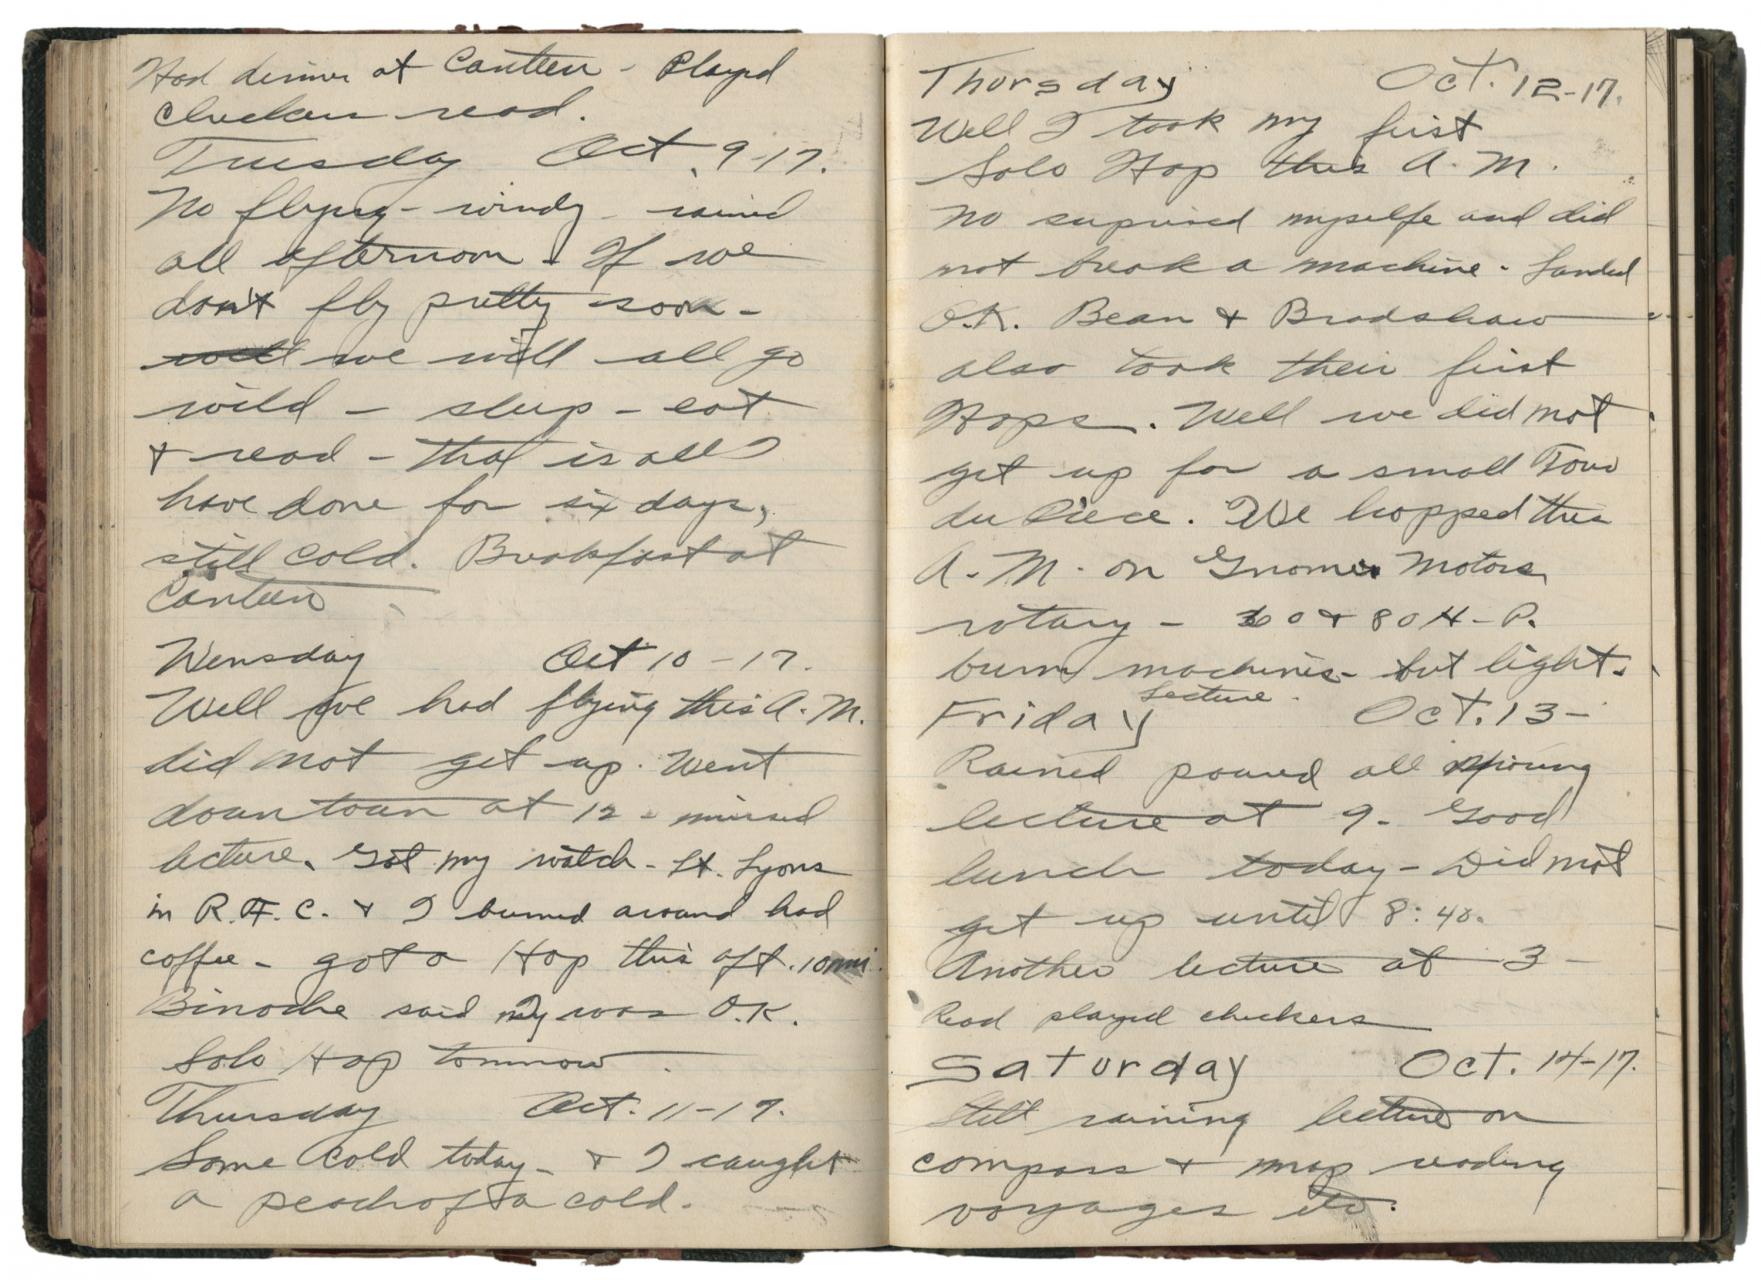 Had dinner at Canteen - Played
checkers read.
Tuesday Oct. 9-17.
No flying - windy - rained
all afternoon. If we
don't fly pretty soon -
well we will all go
wild - sleep - eat
+ read - that is all I
have done for six days,
still cold. Breakfast at
Canteen
Wensday Oct 10-17.
Well we had flying this A.M.
did not get up. Went
down town at 12 - missed
lecture. Got my watch - Lt. Lyons
in R.F.C. + I bumed around had
coffee - got a Hop this aft. 10 min.
Binoche said I was O.K.
Solo Hop tomrrow.
Thursday Oct. 11-17.
Some Cold today - + I caught
a peach of a cold.
Thorsday Oct. 12-17.
Well I took my first
Solo Hop this A.M.
No suprised myselfe and did
not break a machine. Landed
O.K. Bean + Bradshaw
also took their first
Hops. Well we did not
get up for a small Tour
du Piece. We hopped this
A.M. on Gnome Motors
rotary - 60 + 80 H-P.
bum machines - but light.
Lecture.
Friday Oct. 13-
Rained poured all morning
lecture at 9. Good
lunch today - Did not
get up until 8:40.
Another lecture at 3 -
Read played checkers
Saturday Oct. 14-17.
Still raining lecture on
compass + map reading
voyages etc.